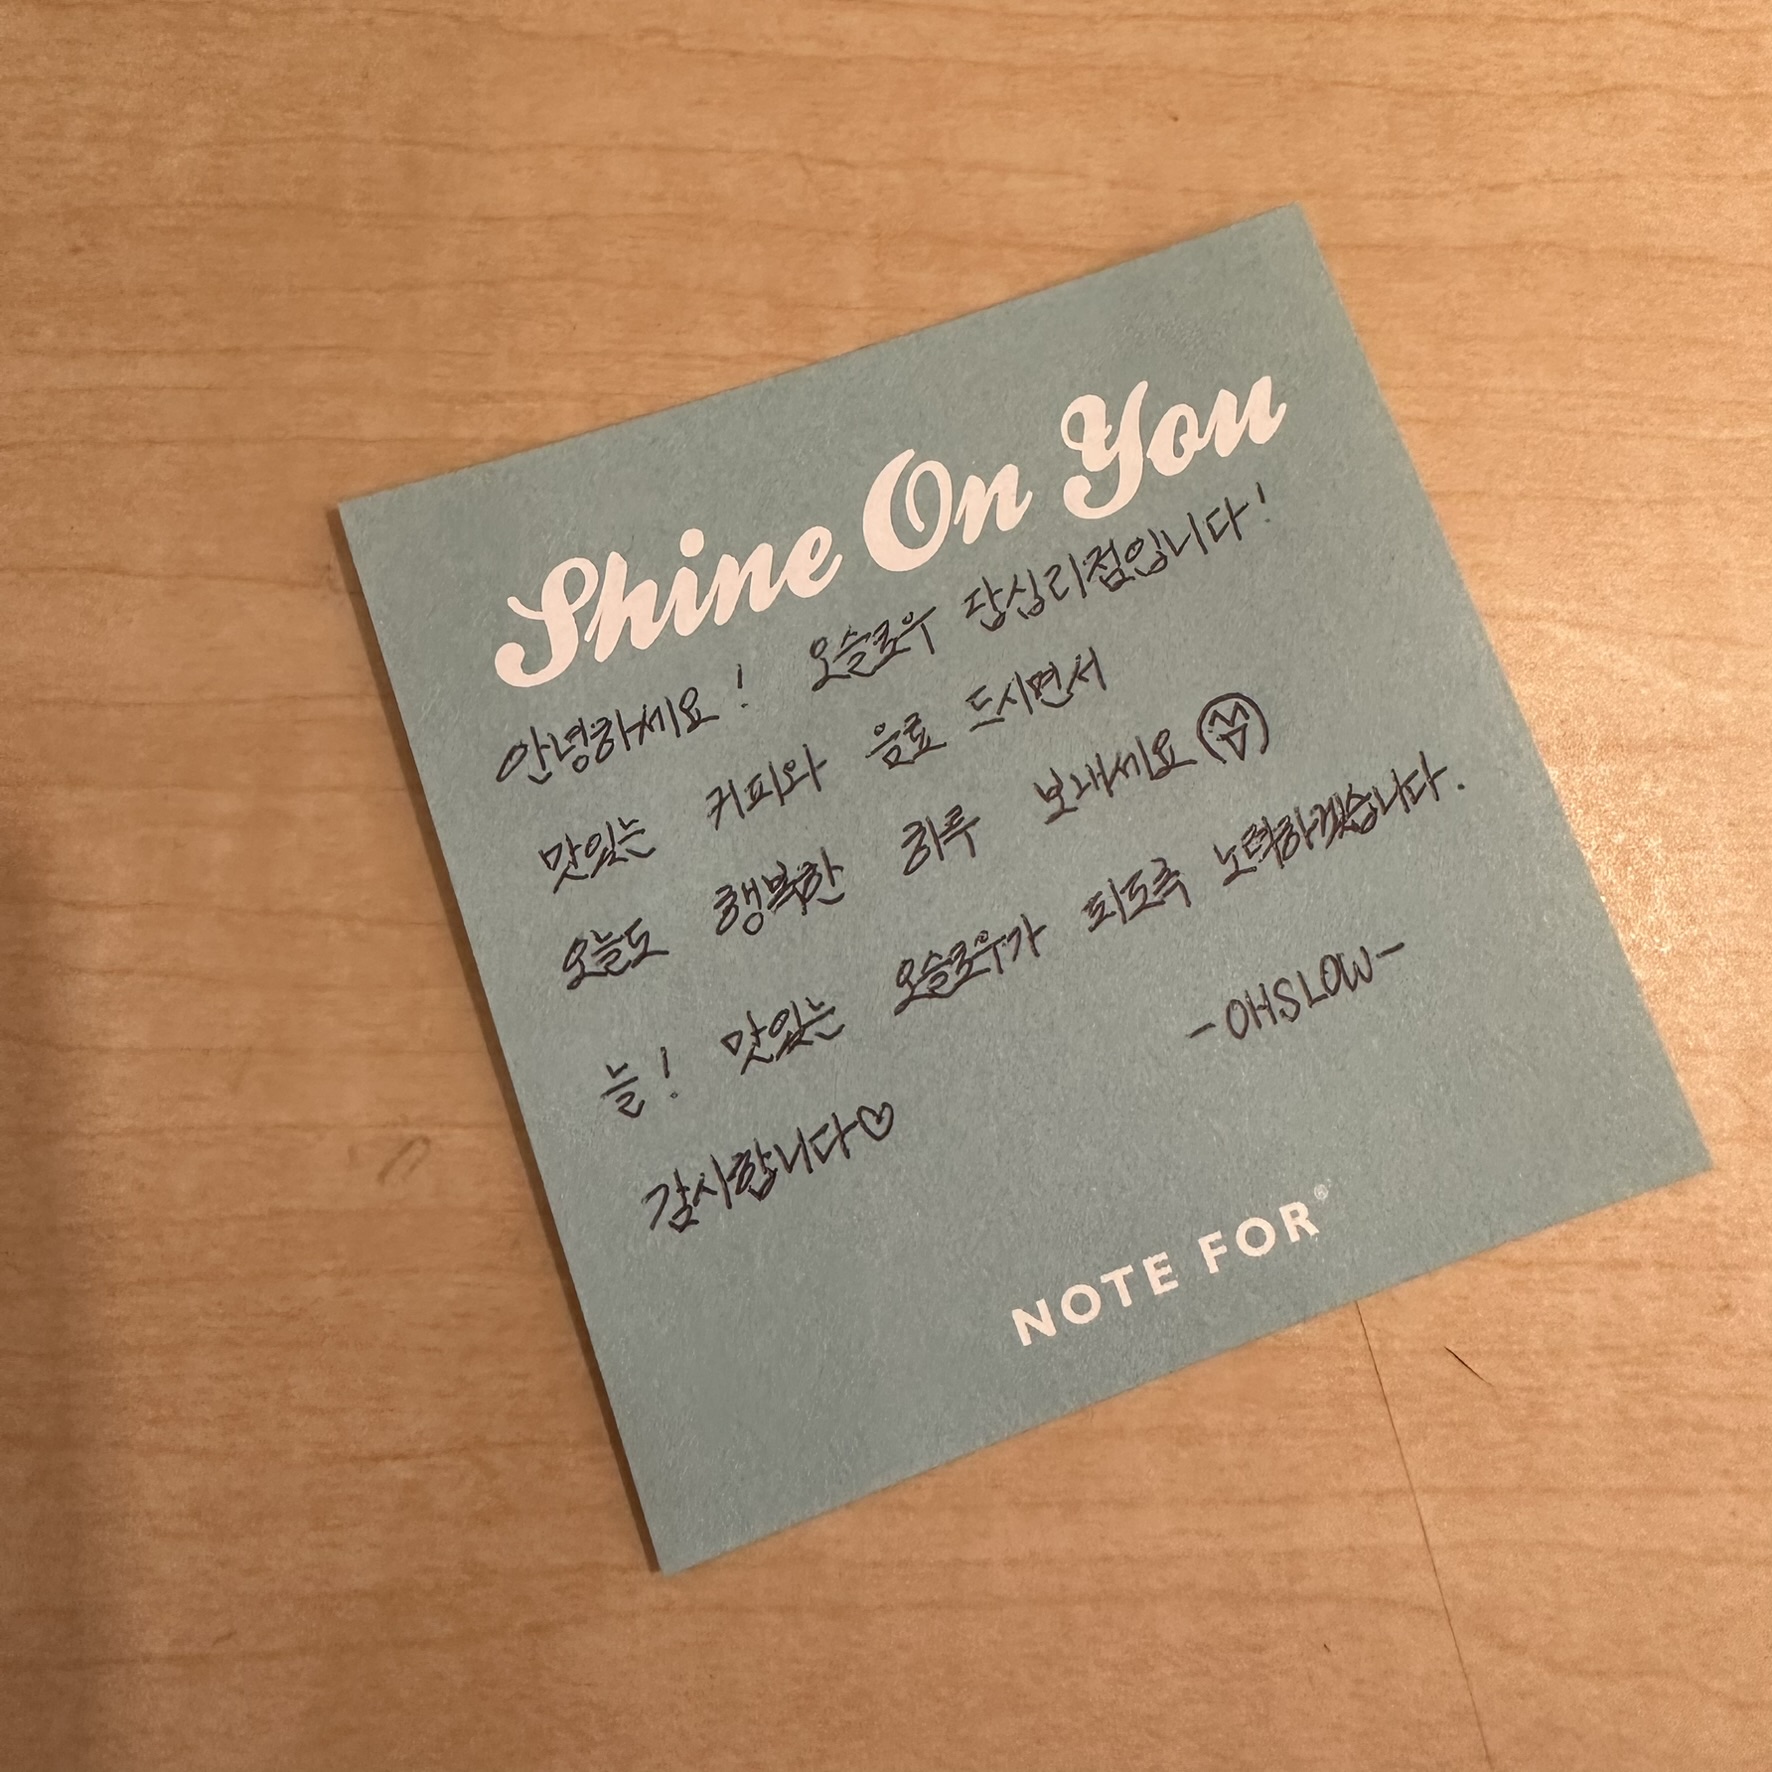 Shine On You
안녕하세요! 오슬로우 답십리점입니다!
맛있는 커피와 음료 드시면서
오늘도 행복한 하루 보내세요
늘! 맛있는 오슬로우가 되도록 노력하겠습니다.
감사합니다♡
-OHSLOW-
NOTE FOR®